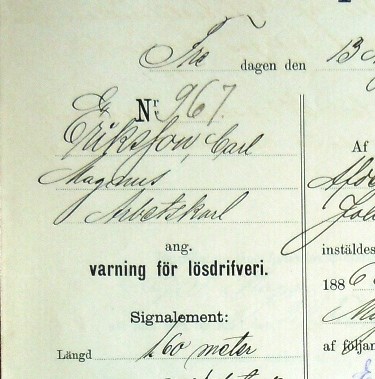 Fre dagen den 13
Nr 967.
Eriksson, Carl
Magnus
Arbetskarl
ang.
varning för lösdrifveri.
Signalement:
Längd 160 meter
Af
instäldes
1886
af följan